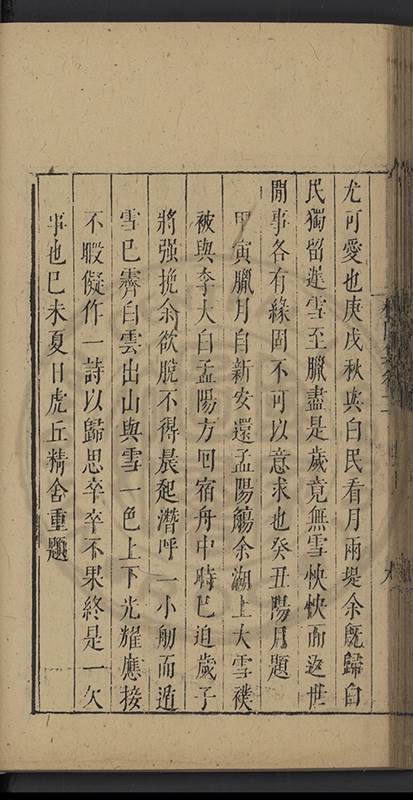 尤可愛也庚戌秋與白民看月兩堤余旣歸白
民獨留遲雪至臘盡是歲竟無雪怏怏而返世
間事各有緣固不可以意求也癸丑陽月題
甲寅臘月自新安還孟陽觴余湖上大雪襆
被與李大白孟陽方囘宿舟中時已迫歲子
將强挽余欲脫不得晨起潛呼一小舠而遁
雪已霽白雲出山與雪一色上下光耀應接
不暇儗作一詩以歸思卒卒不果終是一欠
事也巳未夏日虎丘精舍重題